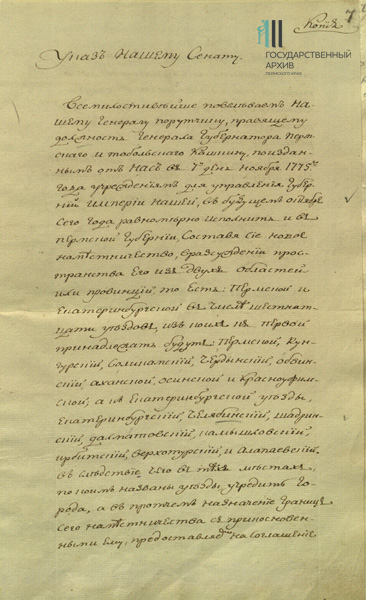 Копія
7
ГОСУДАРСТВЕННЫЙ
АРХИВ
ПЕРМСКОГО КРАЯ
Указъ нашему Сенату.
Всемилостивѣйше повелѣваемъ на
шему Генералу порутчику, правящему
должность Генерала Губернатора перм
скаго и тобольскаго Кашкину, по издан
нымъ отъ насъ въ 7й день ноября 1775го
года учрежденіямъ для управленія Губер
ній имперіи нашей, въ будущемъ октябрѣ
сего года равномѣрно исполнить и въ
пермской Губерніи, составя сіе новое
намѣстничество, вразсужденіи про
странства Его изъ двухъ областей
или провинцій, то есть: Пермской и
Екатеринбургской въ числѣ шестнат
цати уѣздовъ, изъ коихъ къ первой
принадлежать будутъ: Пермской, Кун
гурскій, Соликамскій, Чердынскій, обвин
скій, оханской, осинской и Красноуфим
ской, а къ Екатеринбургской уѣзды,
Екатеринбургскій, Челябинскій, шадрин
скій, далматовскій, камышловскій,
ирбитскій, верхотурскій, и Алапаевскій.
въ слѣдствіе чего въ тѣхъ мѣстахъ,
по коимъ названы уѣзды, учредить го
рода, а въ протчемъ назначеніе границъ
сего намѣстничества съ прикосновен
ными ему, предоставляемъ на соглашеніе